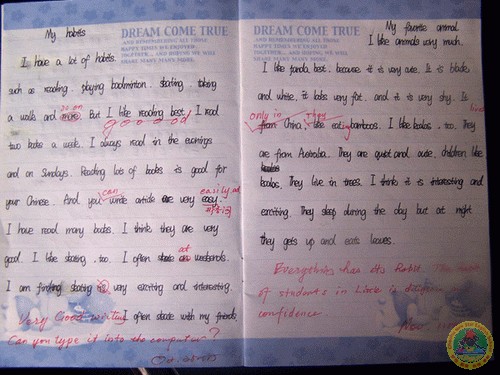 My habits
DREAM COME TRUE
AND REMEMBERING ALL THOSE
HAPPY TIMES WE ENJOYED
TOGETHER... AND HOPING WE WILL
SHARE MANY MANY MORE.
I have a lot of habits.
such as reading. playing badminton. skating. taking
so on
a walk and more. But I like reading best. I read
good
two books a week. I always read in the evenings
and on Sundays. Reading lots of books is good for
can easily
your Chinese. And you write article are very easy.
I have read many books. I think they are very
at
good. I like skating, too. I often skate weekends.
I am finding skating is very exciting and interesting.
Very Good writing I often skate with my friends.
Can you type it into the computer?
My favorite animal
DREAM COME TRUE
AND REMEMBERING ALL THOSE
HAPPY TIMES WE ENJOYED
TOGETHER... AND HOPING WE WILL
SHARE MANY MANY MORE.
I like animals very much.
I like panda best. because it is very cute. It is black
and white. it looks very fat. and it is very shy. Is
only in They live
from China. like eating bamboos. I like koalas, too. They
are from Australia. They are quiet and cute. children like
koalas. They live in trees. I think it is interesting and
exciting. They sleep during the day but at night
they gets up and eats leaves.
Everything has its habit. The
of students in Little is
confidence.
Nov